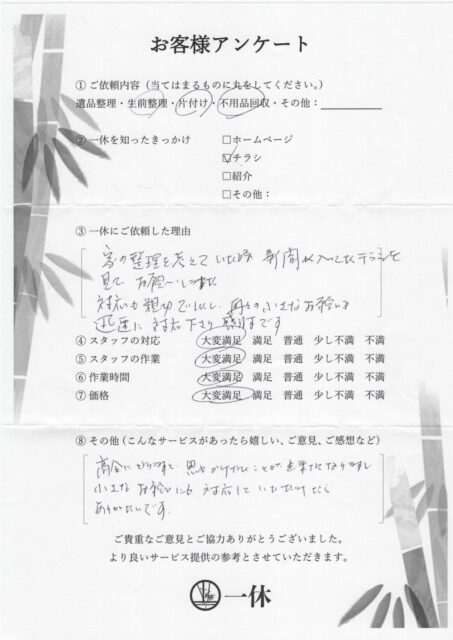 お客様アンケート
① ご依頼内容（当てはまるものに丸をしてください。）
遺品整理・生前整理・片付け・不用品回収・その他：
② 一休を知ったきっかけ
□ホームページ
☑チラシ
□紹介
□その他：
③ 一休にご依頼した理由
家の整理を考えていた時 新聞に入ってたチラシを
見て、お願いしました
対応も親切でしたし、小さなお願いも
迅速に対応下さり
④ スタッフの対応 大変満足 満足 普通 少し不満 不満
⑤ スタッフの作業 大変満足 満足 普通 少し不満 不満
⑥ 作業時間 大変満足 満足 普通 少し不満 不満
⑦ 価格 大変満足 満足 普通 少し不満 不満
⑧ その他（こんなサービスがあったら嬉しい、ご意見、ご感想など）
高令になりますと、思いがけないことが出来なくなりますし
小さなお願いにも対応していただけたら
ありがたいです。
ご貴重なご意見とご協力ありがとうございました。
より良いサービス提供の参考とさせていただきます。
一休